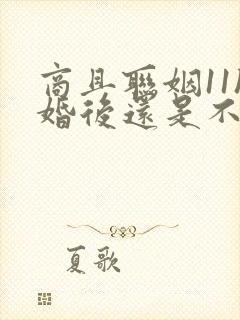 商且聯姻11
婚後還是不
夏歌